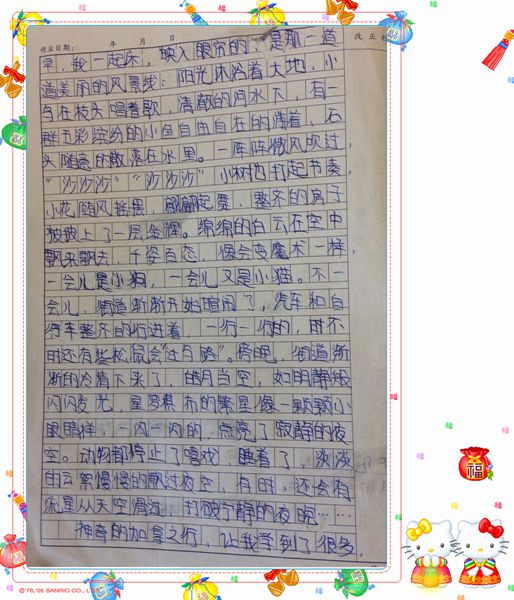 作业日期： 年 月 日 改正
早，我一起床，映入眼帘的，是那一道
道美丽的风景线：阳光沐浴着大地，小
鸟在枝头唱着歌，清澈的河水下，有一
群五彩缤纷的小鱼自由自在的游着，石
头随意的散落在水里。一阵阵微风吹过，
“沙沙沙”“沙沙沙”小树也打起节奏，
小花随风摇摆，翩翩起舞，整齐的房子
被披上了一层金辉。绵绵的白云在空中
飘来飘去，千姿百态，像会变魔术一样，
一会儿是小狗，一会儿又是小猫。不一
会儿，街道渐渐开始喧闹了，汽车和自
行车整齐的行进着，一行一行的，时不
时还有些松鼠会“过马路”。傍晚，街道渐
渐的冷清下来了，皓月当空，如明静般
闪闪发光，星罗棋布的繁星像一颗颗小
眼睛样，一闪一闪的，点亮了寂静的夜
空。动物都停止了嘻戏，睡着了，淡淡
的云雾慢慢的飘过夜空，有时，还会有
流星从天空溜过，打破宁静的夜晚……
神奇的加拿大之行，让我学到了很多，
©'76,'05 SANRIO CO., L
福